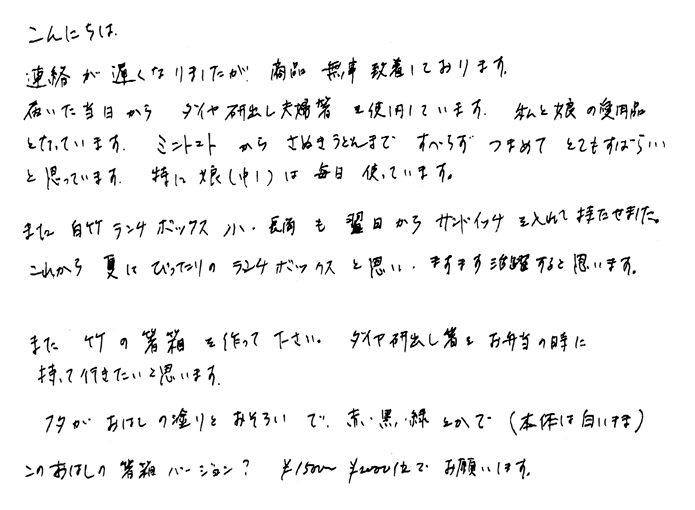 こんにちは。
連絡が遅くなりましたが 商品 無事 到着しております。
届いた当日から ダイヤ研出し夫婦箸を使用しています。 私と娘の愛用品
となっています。 ミニトマトから さぬきうどんまで すべらず つまめて とてもすばらしい
と思っています。 特に娘(中1)は毎日 使っています。
また 白竹ランチボックス 小・長角も 翌日から サンドイッチを入れて持たせました。
これから 夏にぴったりの ランチボックスと思い、ますます活躍すると思います。
また 竹の箸箱を作って下さい。 ダイヤ研出し箸をお弁当の時に
持って行きたいと思います。
フタが おはしの塗りと おそろいで、赤・黒・緑とかで (本体は白いまま)
このおはしの 箸箱バージョン? ¥1500〜¥2000位で お願いします。